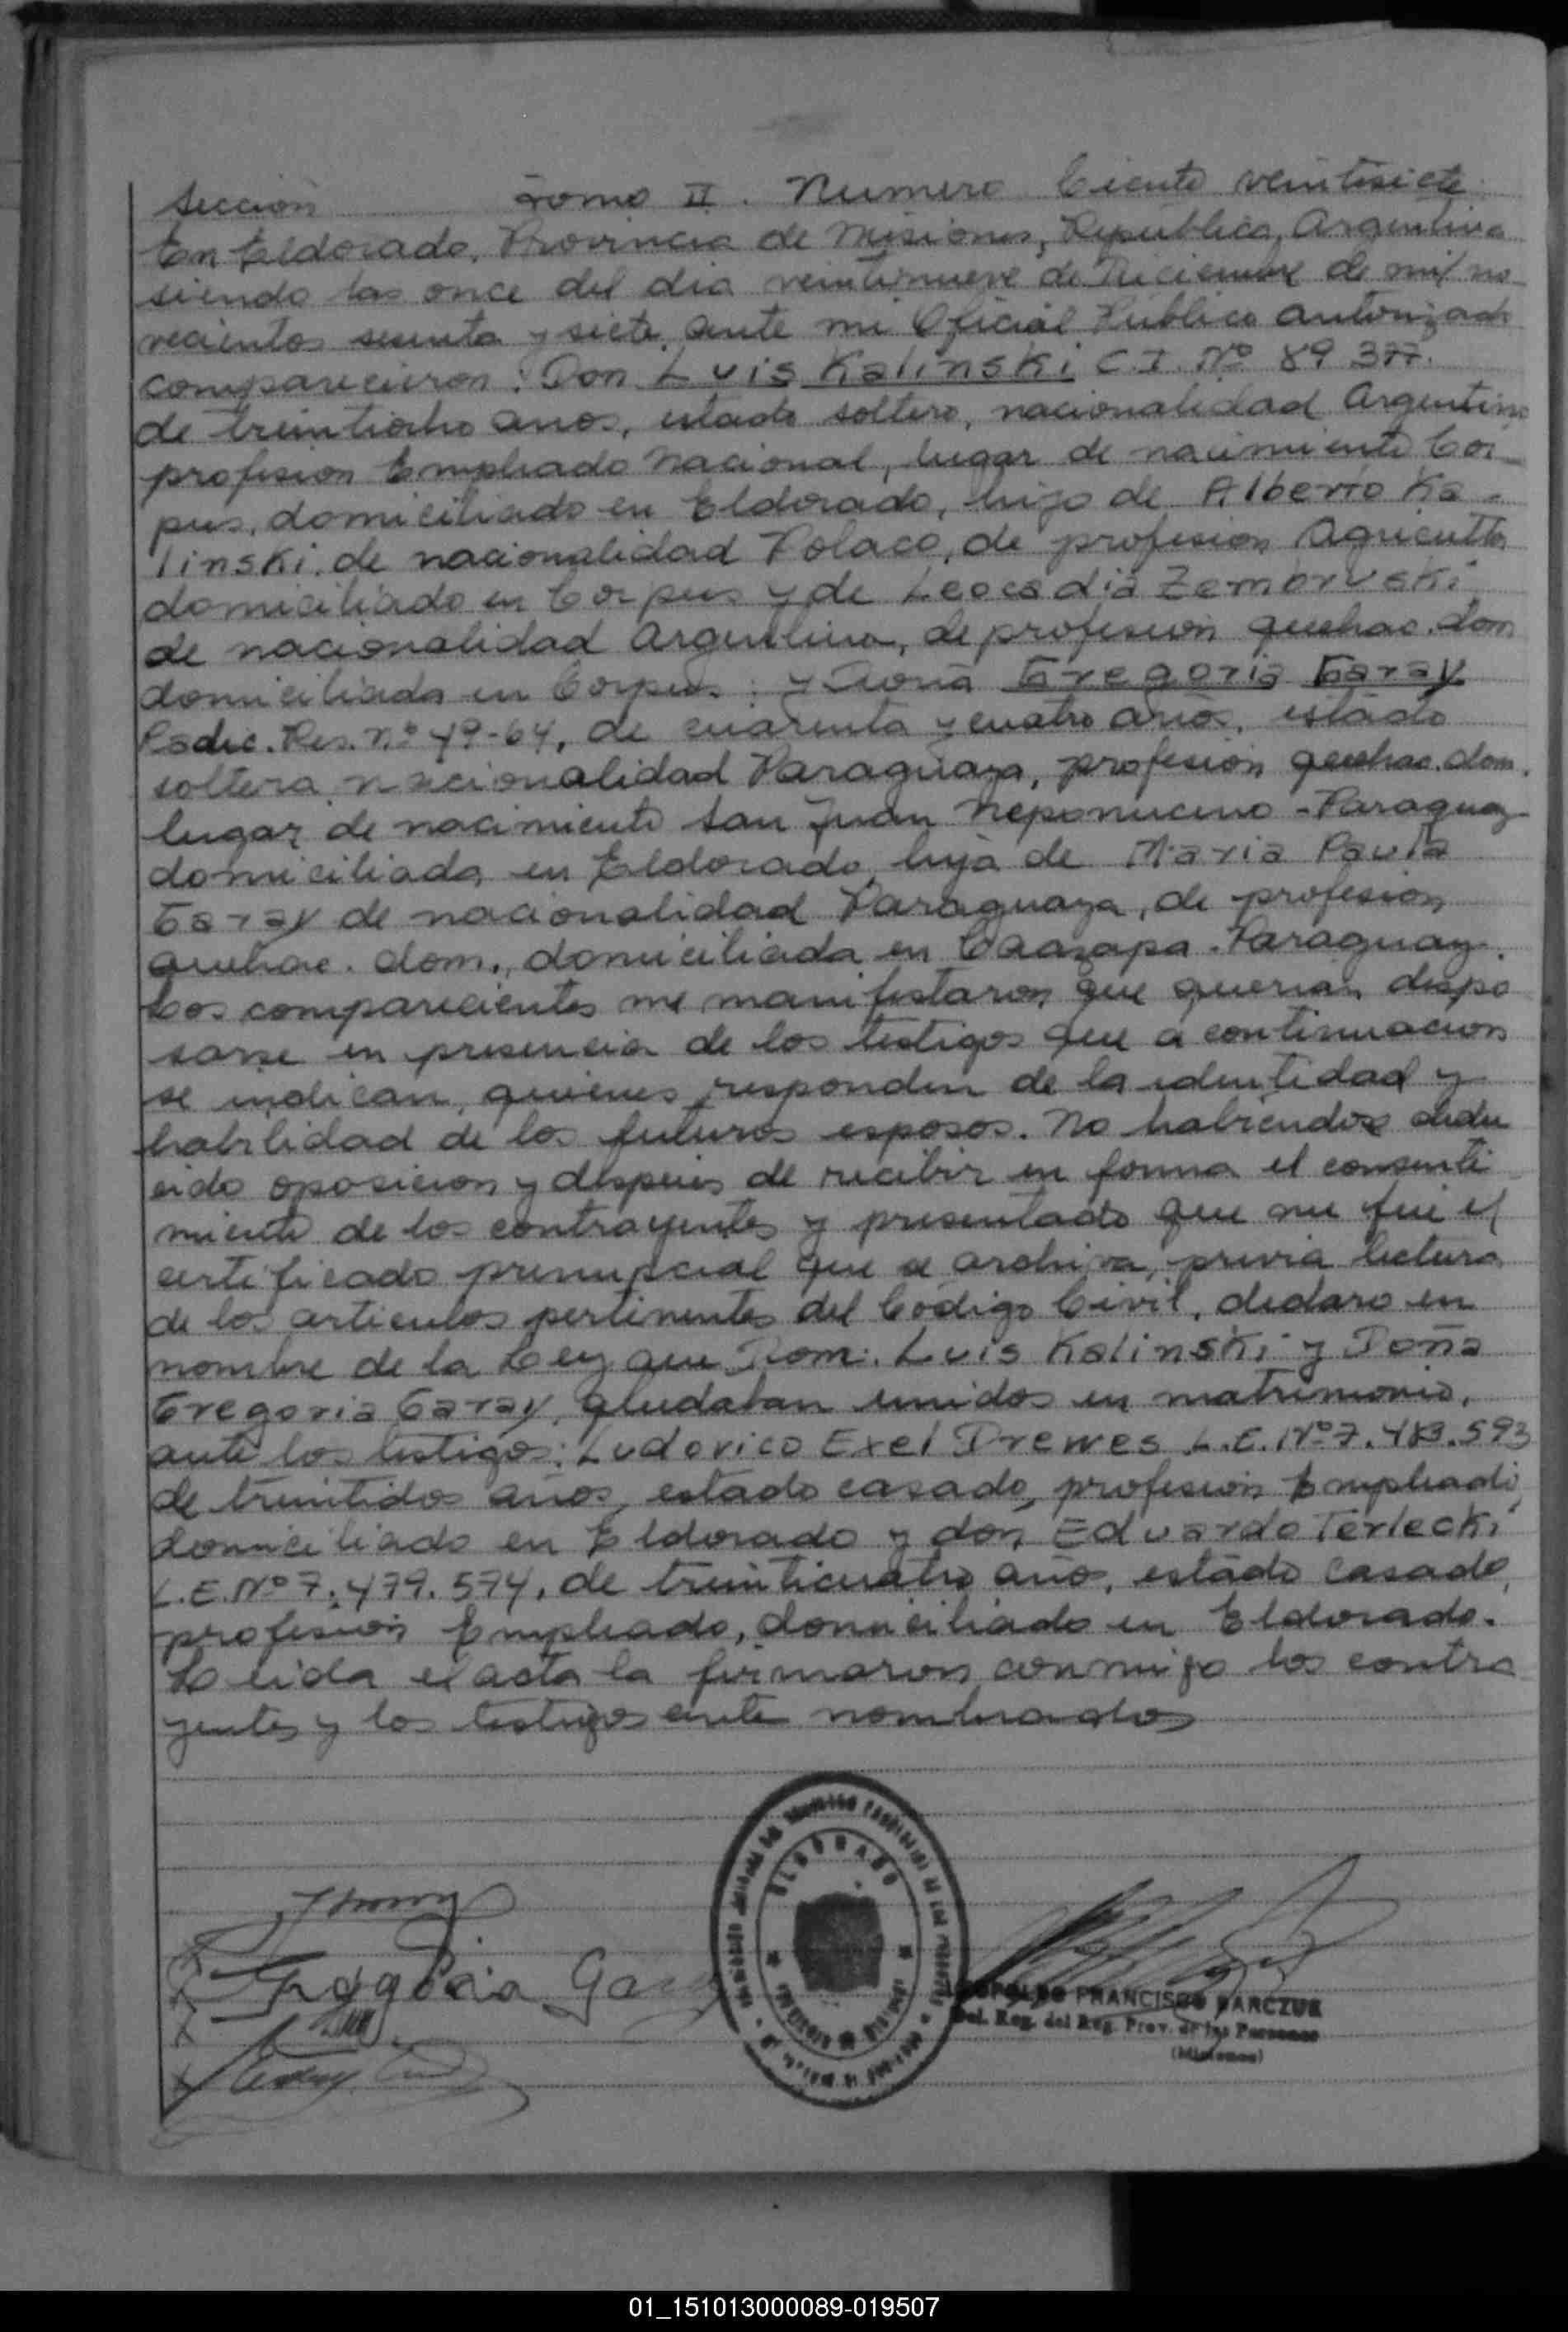 Seccion Tomo II. Numero Ciento veintisiete
En Eldorado, Provincia de Misiones, Republica Argentina
siendo las once del dia veintinueve de Diciembre de mil no
vecientos sesenta y siete, ante mi Oficial Publico autorizado
comparecieron: Don Luis Kalinski C.I. Nº 89 377.
de treintiocho años, estado soltero, nacionalidad Argentino
profesion Empleado Nacional, lugar de nacimiento Cor-
pus, domiciliado en Eldorado, hijo de Alberto Ka-
linski, de nacionalidad Polaco, de profesion Agricultor
domiciliado en Corpus y de Leocadia Zembruski
de nacionalidad Argentina, de profesion quehac. dom
domiciliada en Corpus; y Doña Gregoria Garay
Radic. Res. nº 49-64, de cuarenta y cuatro años, estado
soltera, nacionalidad Paraguaya, profesion quehac. dom.
lugar de nacimiento San Juan Nepomuceno - Paraguay
domiciliada en Eldorado, hija de Maria Paula
Garay de nacionalidad Paraguaya, de profesion
quehac. dom., domiciliada en Caazapa - Paraguay.
Los comparecientes me manifestaron que querian despo
sarse en presencia de los testigos que a continuacion
se indican, quienes responden de la identidad y
habilidad de los futuros esposos. No habiendose dedu
cido oposicion y despues de recibir en forma el consenti
miento de los contrayentes y presentado que me fue el
certificado prenupcial que se archiva, previa lectura
de los articulos pertinentes del Codigo Civil, declaro en
nombre de la Ley que Dom. Luis Kalinski y Doña
Gregoria Garay, quedaban unidos en matrimonio,
ante los testigos: Ludovico Exel Drewes L.E. Nº 7.483.593
de treintidos años, estado casado, profesion Empleado,
domiciliado en Eldorado y don Eduardo Terlecki
L.E. Nº 7.479.574, de treinticuatro años, estado casado,
profesion Empleado, domiciliado en Eldorado.
Leida el acta la firmaron conmigo los contra
yentes y los testigos ante nombrados
ELDORADO
Gregoria Garay
LEOPOLDO FRANCISCO BARCZUK
Del. Reg. del Reg. Prov. de las Personas
(Misiones)
01_151013000089-019507